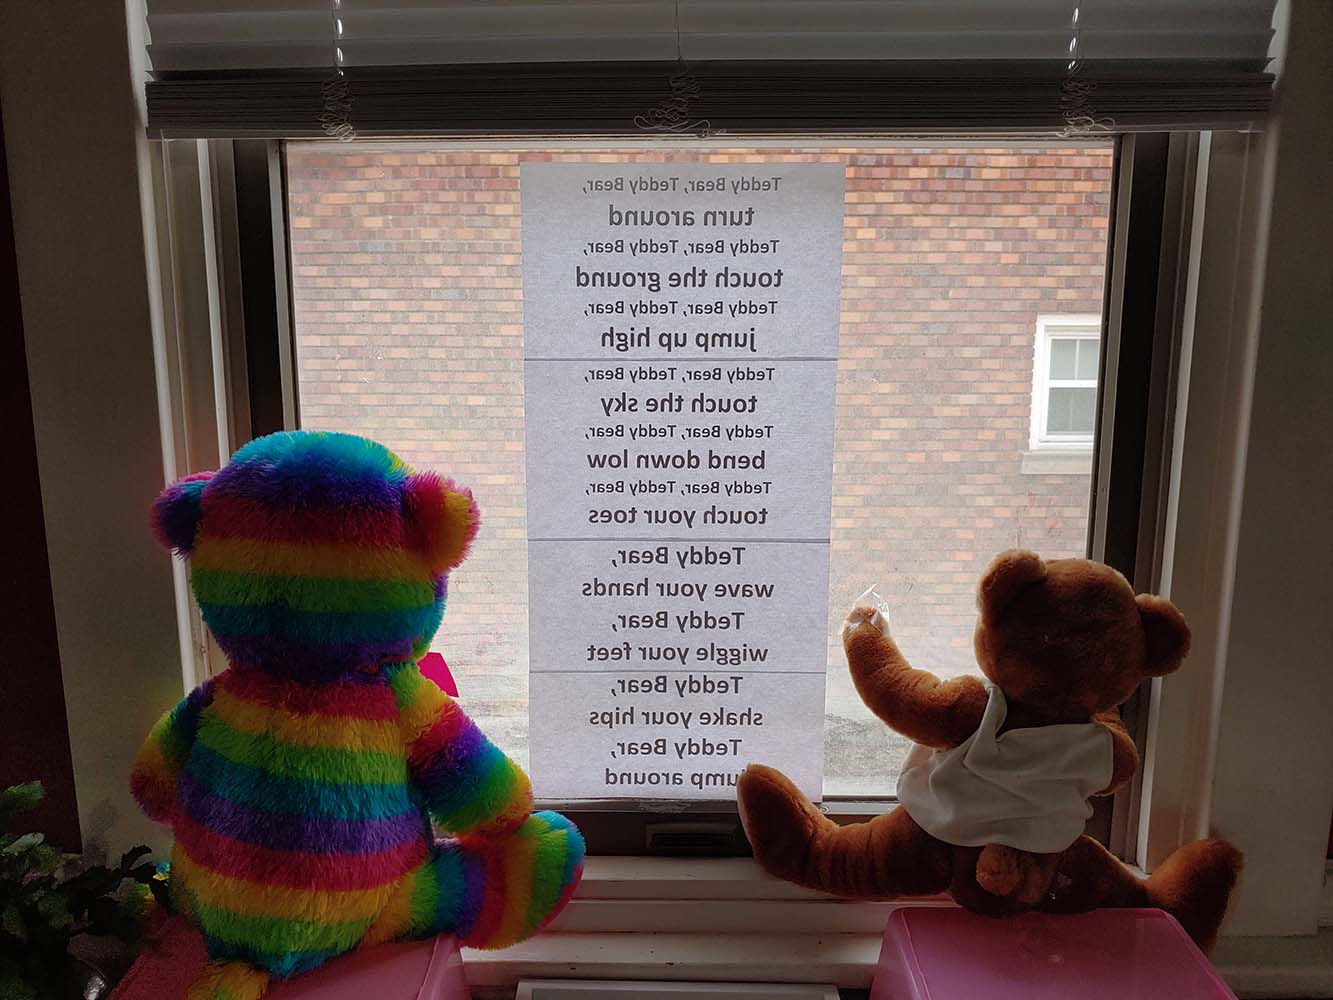 Teddy Bear, Teddy Bear,
turn around
Teddy Bear, Teddy Bear,
touch the ground
Teddy Bear, Teddy Bear,
jump up high
Teddy Bear, Teddy Bear,
touch the sky
Teddy Bear, Teddy Bear,
bend down low
Teddy Bear, Teddy Bear,
touch your toes
Teddy Bear,
wave your hands
Teddy Bear,
wiggle your feet
Teddy Bear,
shake your hips
Teddy Bear,
jump around